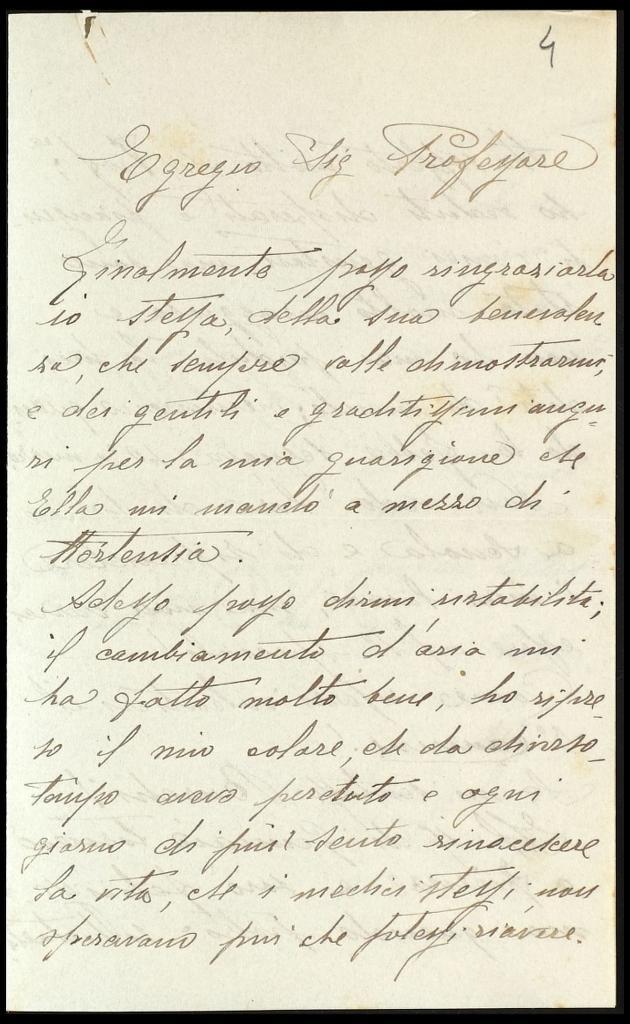 4
Egregio Sig Professore
Finalmente posso ringraziarla
io stessa, della sua benevolen
za, che sempre volle dimostrarmi,
e dei gentili e graditissimi augu-
ri per la mia guarigione che
Ella mi mandò a mezzo di
Hortensia.
Adesso posso dirmi ristabilita;
il cambiamento d'aria mi
ha fatto molto bene, ho ripre-
so il mio colore, che da diverso
tempo avevo perduto e ogni
giorno di più sento rinascere
la vita, che i medici stessi, non
speravano più che potessi riavere.